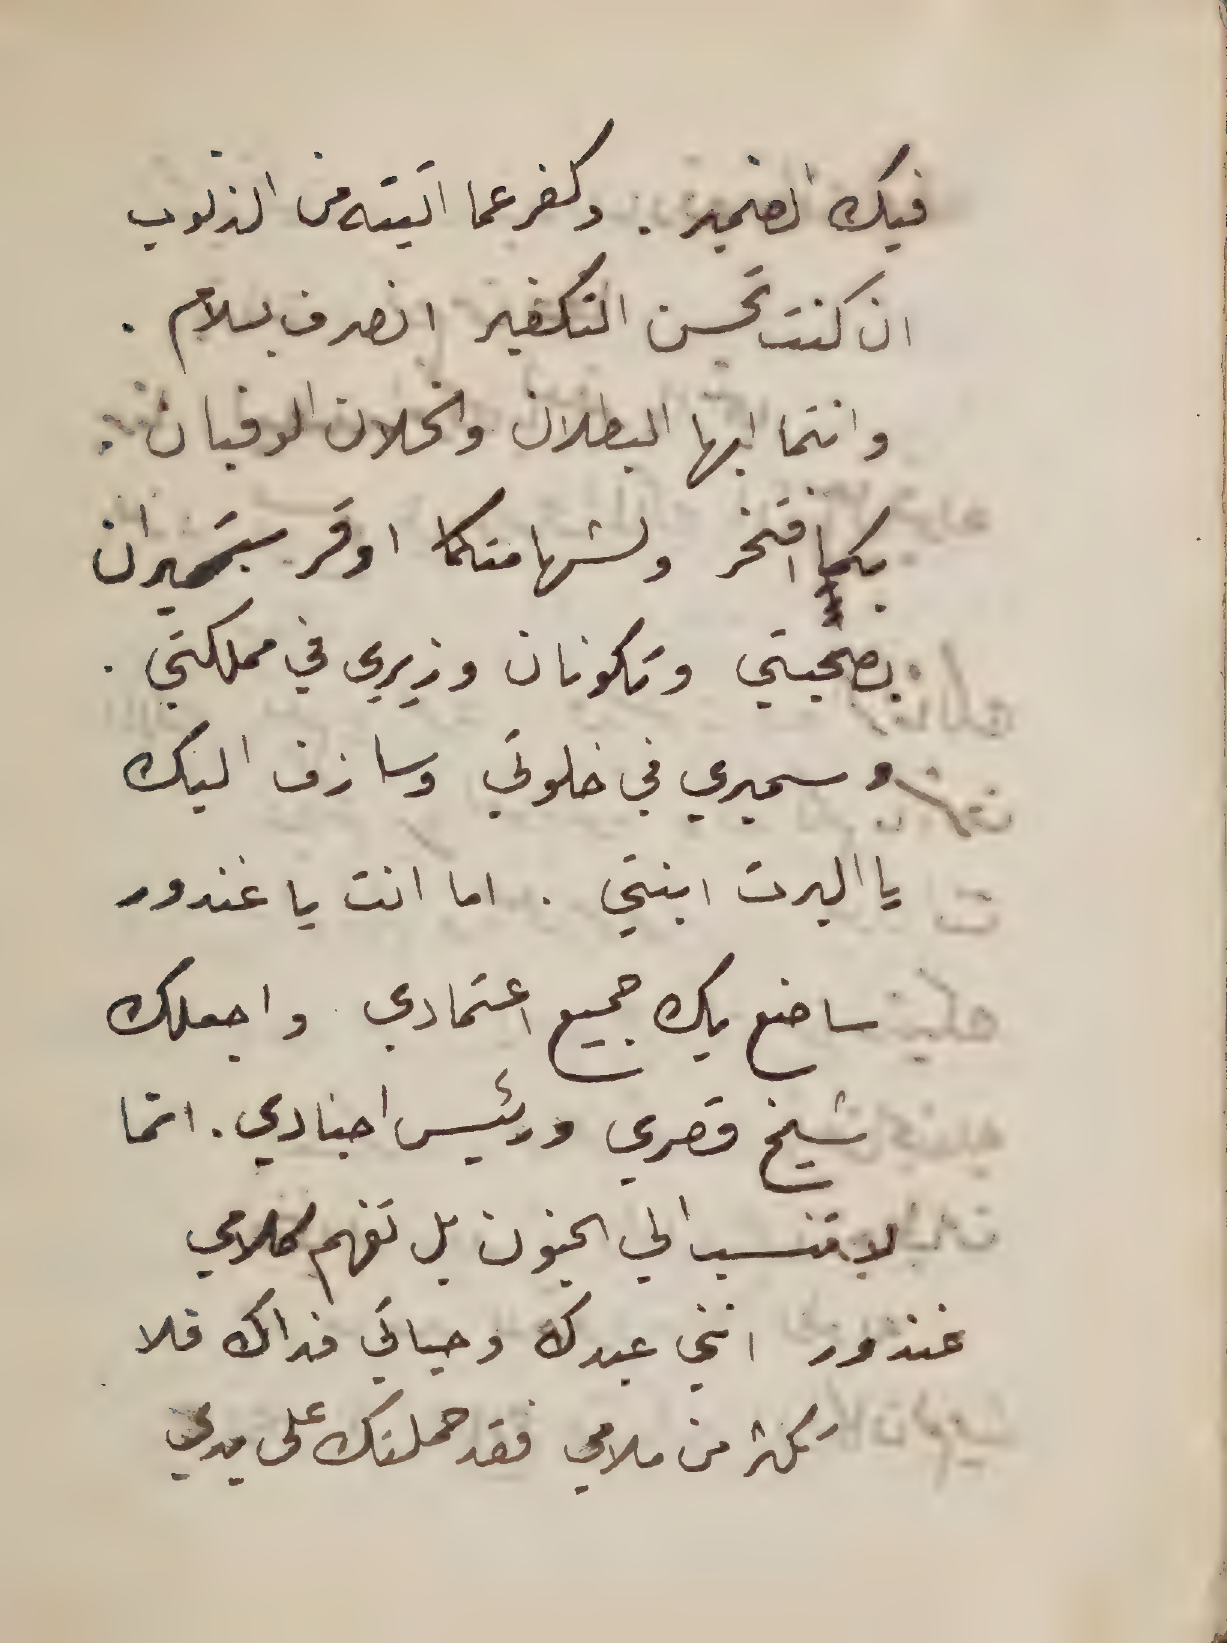 فيك الضمير . وكفر عما اتيته من الذنوب
ان كنت تحسن التكفير انصرف بسلام .
وانتما ايها البطلان والخلان الوفيان .
بكما افتخر ولشهامتكما اوقر ستصيران
بصحبتي وتكونان وزيري في مملكتي .
وسميري في خلوتي وسازف اليك
يا البرت ابنتي . اما انت يا غندور
ساضع بك جميع اعتمادي . واجعلك
شيخ قصري ورئيس اجنادي . انما
لا تنسب الي الجنون بل تفهم كلامي
غندور انني عبدك وحياتي فداك فلا
تكثر من ملامي فقد حملتك على يدي